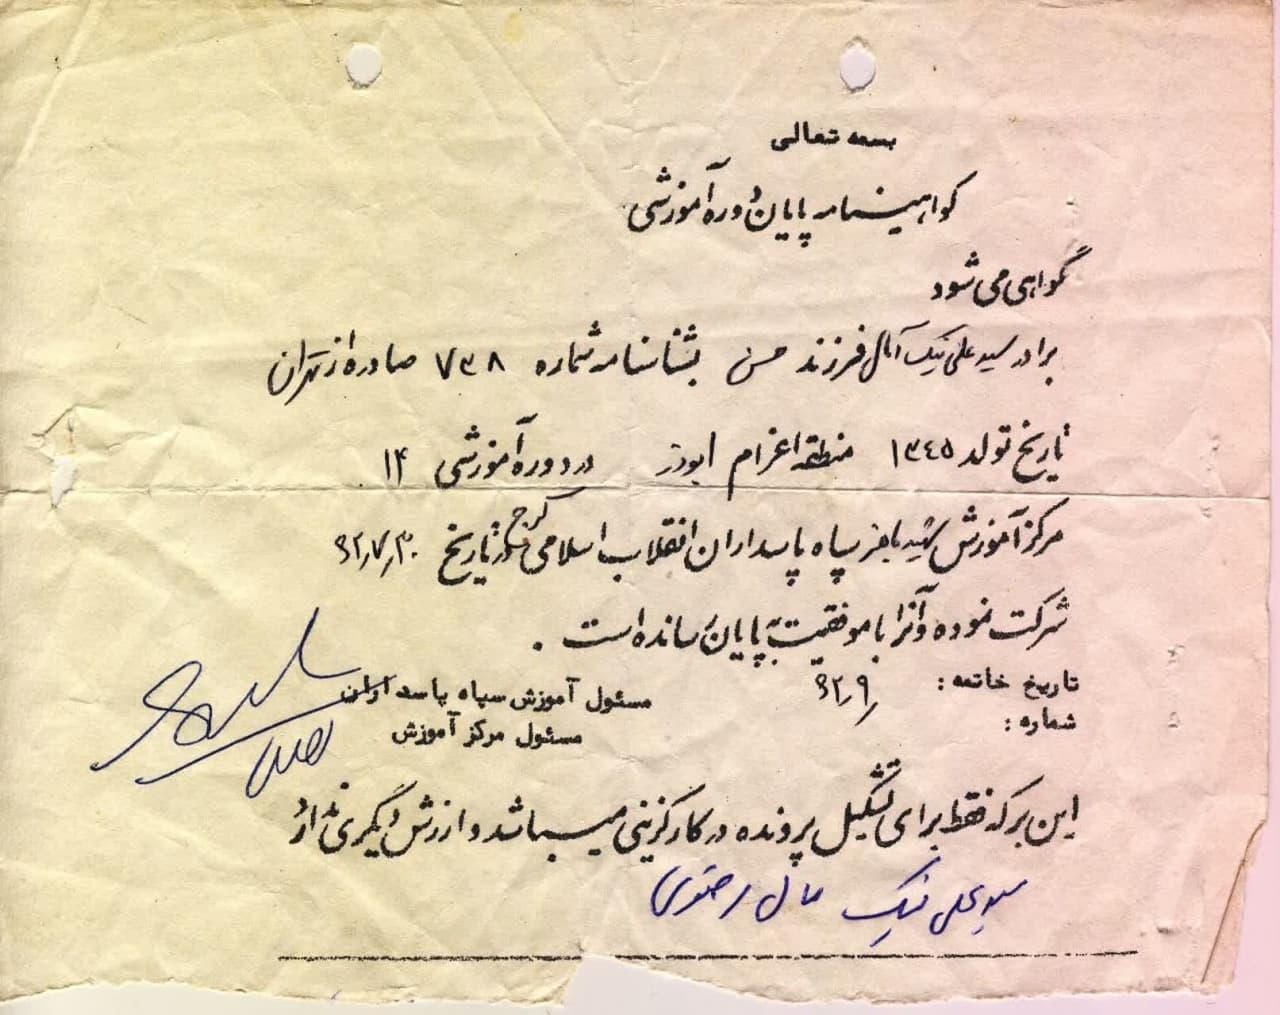 بسمه تعالی
گواهینامه پایان دوره آموزشی
گواهی می شود
برادر سید علی نیک آمال فرزند حسن بشناسنامه شماره ۷۳۸ صادره از تهران
تاریخ تولد ۱۳۴۵ منطقه اعزام ابوذر در دوره آموزشی ۱۴
مرکز آموزش شهید باهنر سپاه پاسداران انقلاب اسلامی کرج در تاریخ ۶۲٫۷٫۳۰
شرکت نموده و آنرا با موفقیت به پایان رسانده است .
تاریخ خاتمه : ۶۲٫۹٫ مسئول آموزش سپاه پاسداران
شماره : مسئول مرکز آموزش
این برگه فقط برای تشکیل پرونده در کارگزینی میباشد و ارزش دیگری ندارد
سید علی نیک مال رضوی